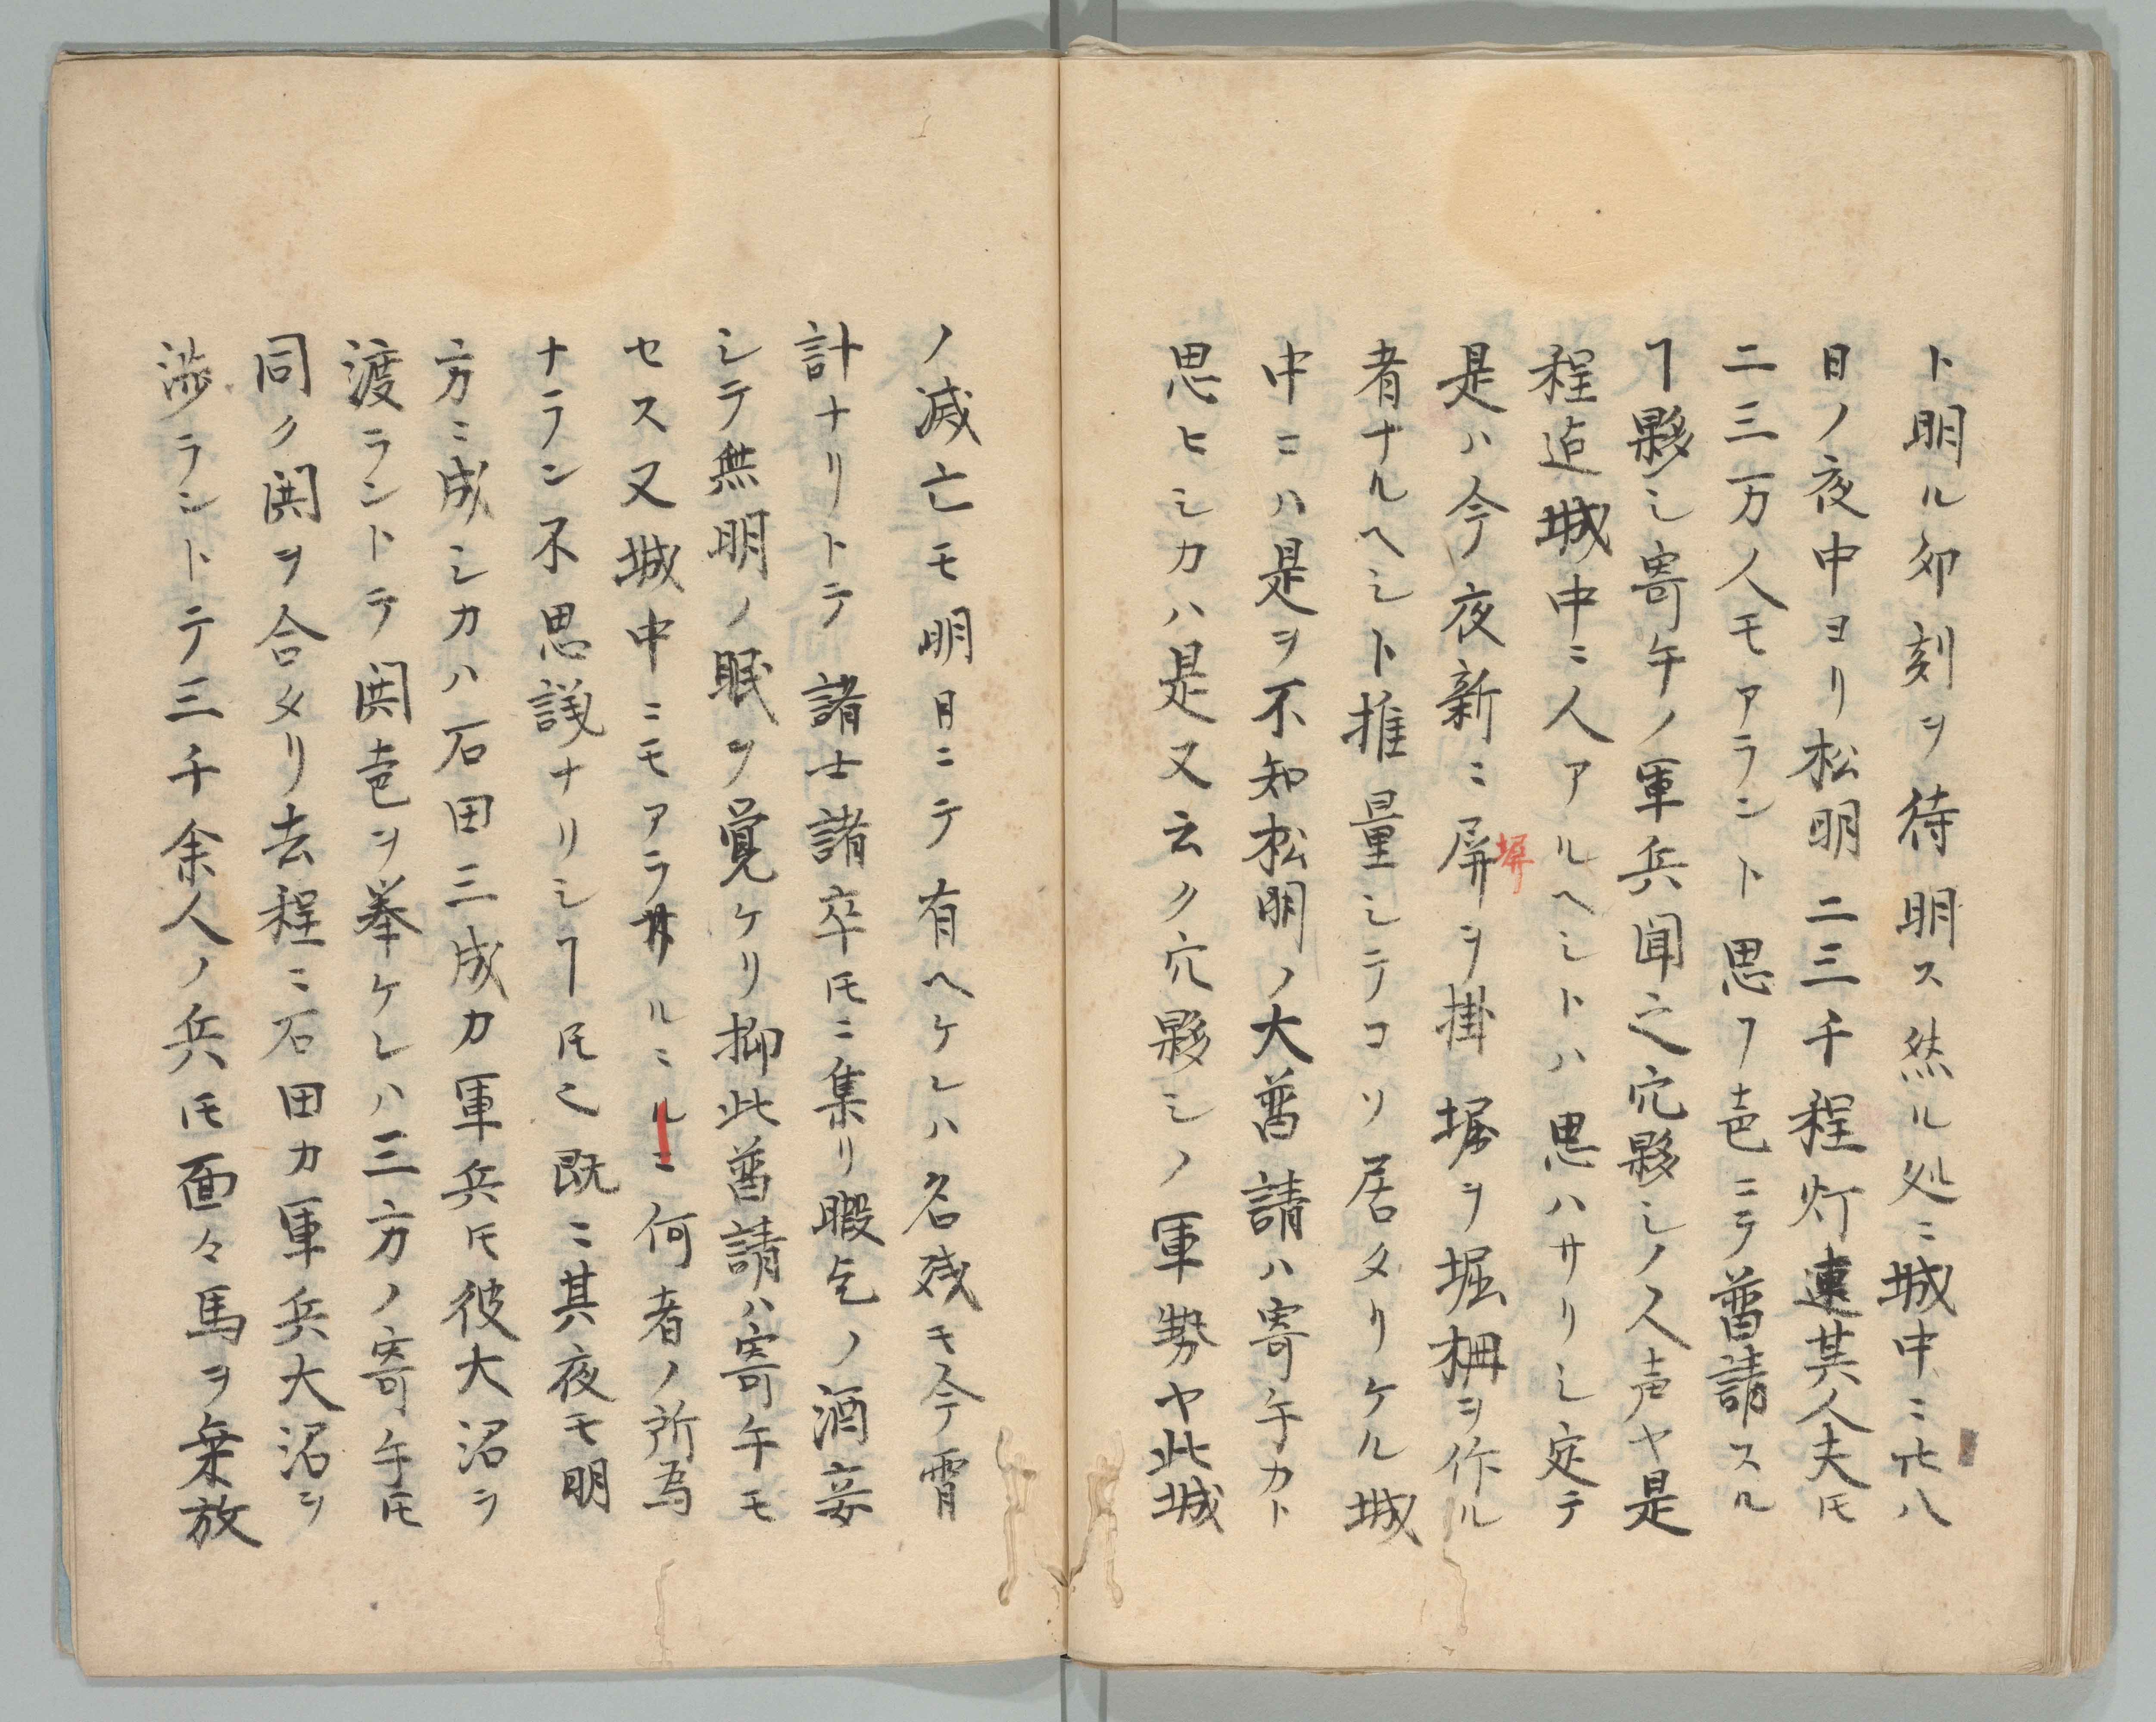 ト明ル夘刻ヲ待明ス然ル処ニ城中ニ廿八
日ノ夜中ヨリ松明二三千程灯連其人夫𪜈
二三万人モアラント思フ壱ニテ普請スル
ヿ夥シ寄手ノ軍兵聞之穴夥シノ人声ヤ是
程迠城中ニ人アルヘシトハ思ハサリシ定テ
是ハ今夜新ニ屏ヲ掛塀ヲ堀柵ヲ作ル
塀
者ナルヘシト推量シテコソ居タリケル城
中ニハ是ヲ不知松明ノ大普請ハ寄手カト
思ヒシカハ是又云ク穴夥シノ軍勢ヤ此城
ノ滅亡モ明日ニテ有ヘケレハ名残モ今宵
計ナリトテ諸士諸卒𪜈ニ集リ暇乞ノ酒宴
シテ無明ノ眠ヲ覚ケリ抑此普請ハ寄手モ
セス又城中ニモアラサルニルニ何者ノ所為
ナラン不思議ナリシヿ𪜈也既ニ其夜モ明
方ニ成シカハ石田三成カ軍兵𪜈彼大沼ヲ
渡ラントテ閧壱ヲ挙ケレハ三方ノ寄手𪜈
同ク閧ヲ合タリ去程ニ石田カ軍兵大沼ヲ
渉ラントテ三千余人ノ兵𪜈面々馬ヲ乗放